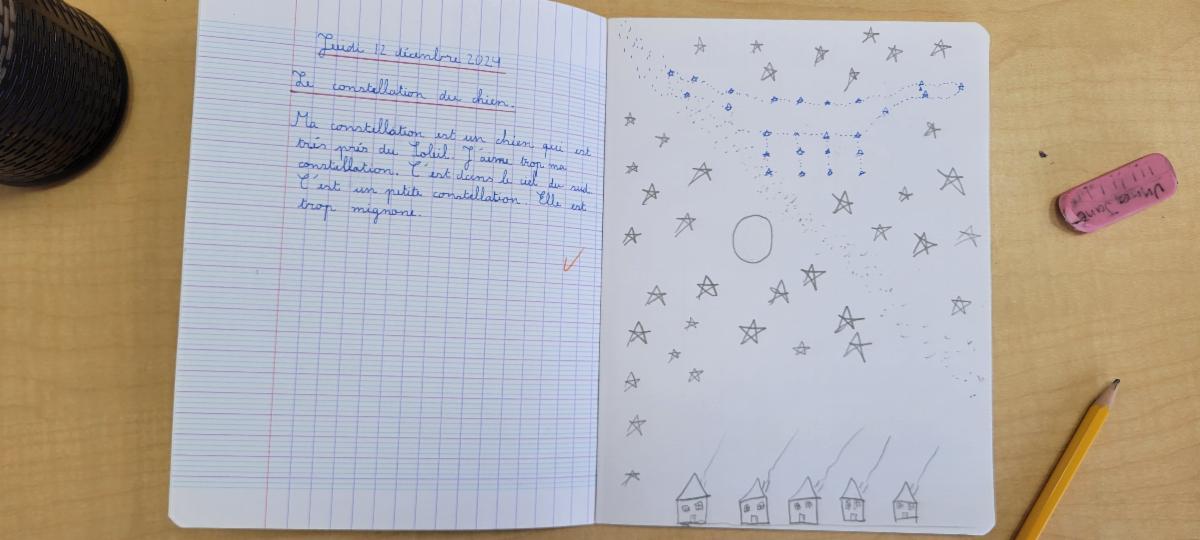 Jeudi 12 décembre 2024
Le constellation du chien.
Ma constellation est un chien qui est
très près du Soleil. J'aime trop ma
constellation. C'est dans le ciel du sud.
C'est un petite constellation. Elle est
trop mignone.